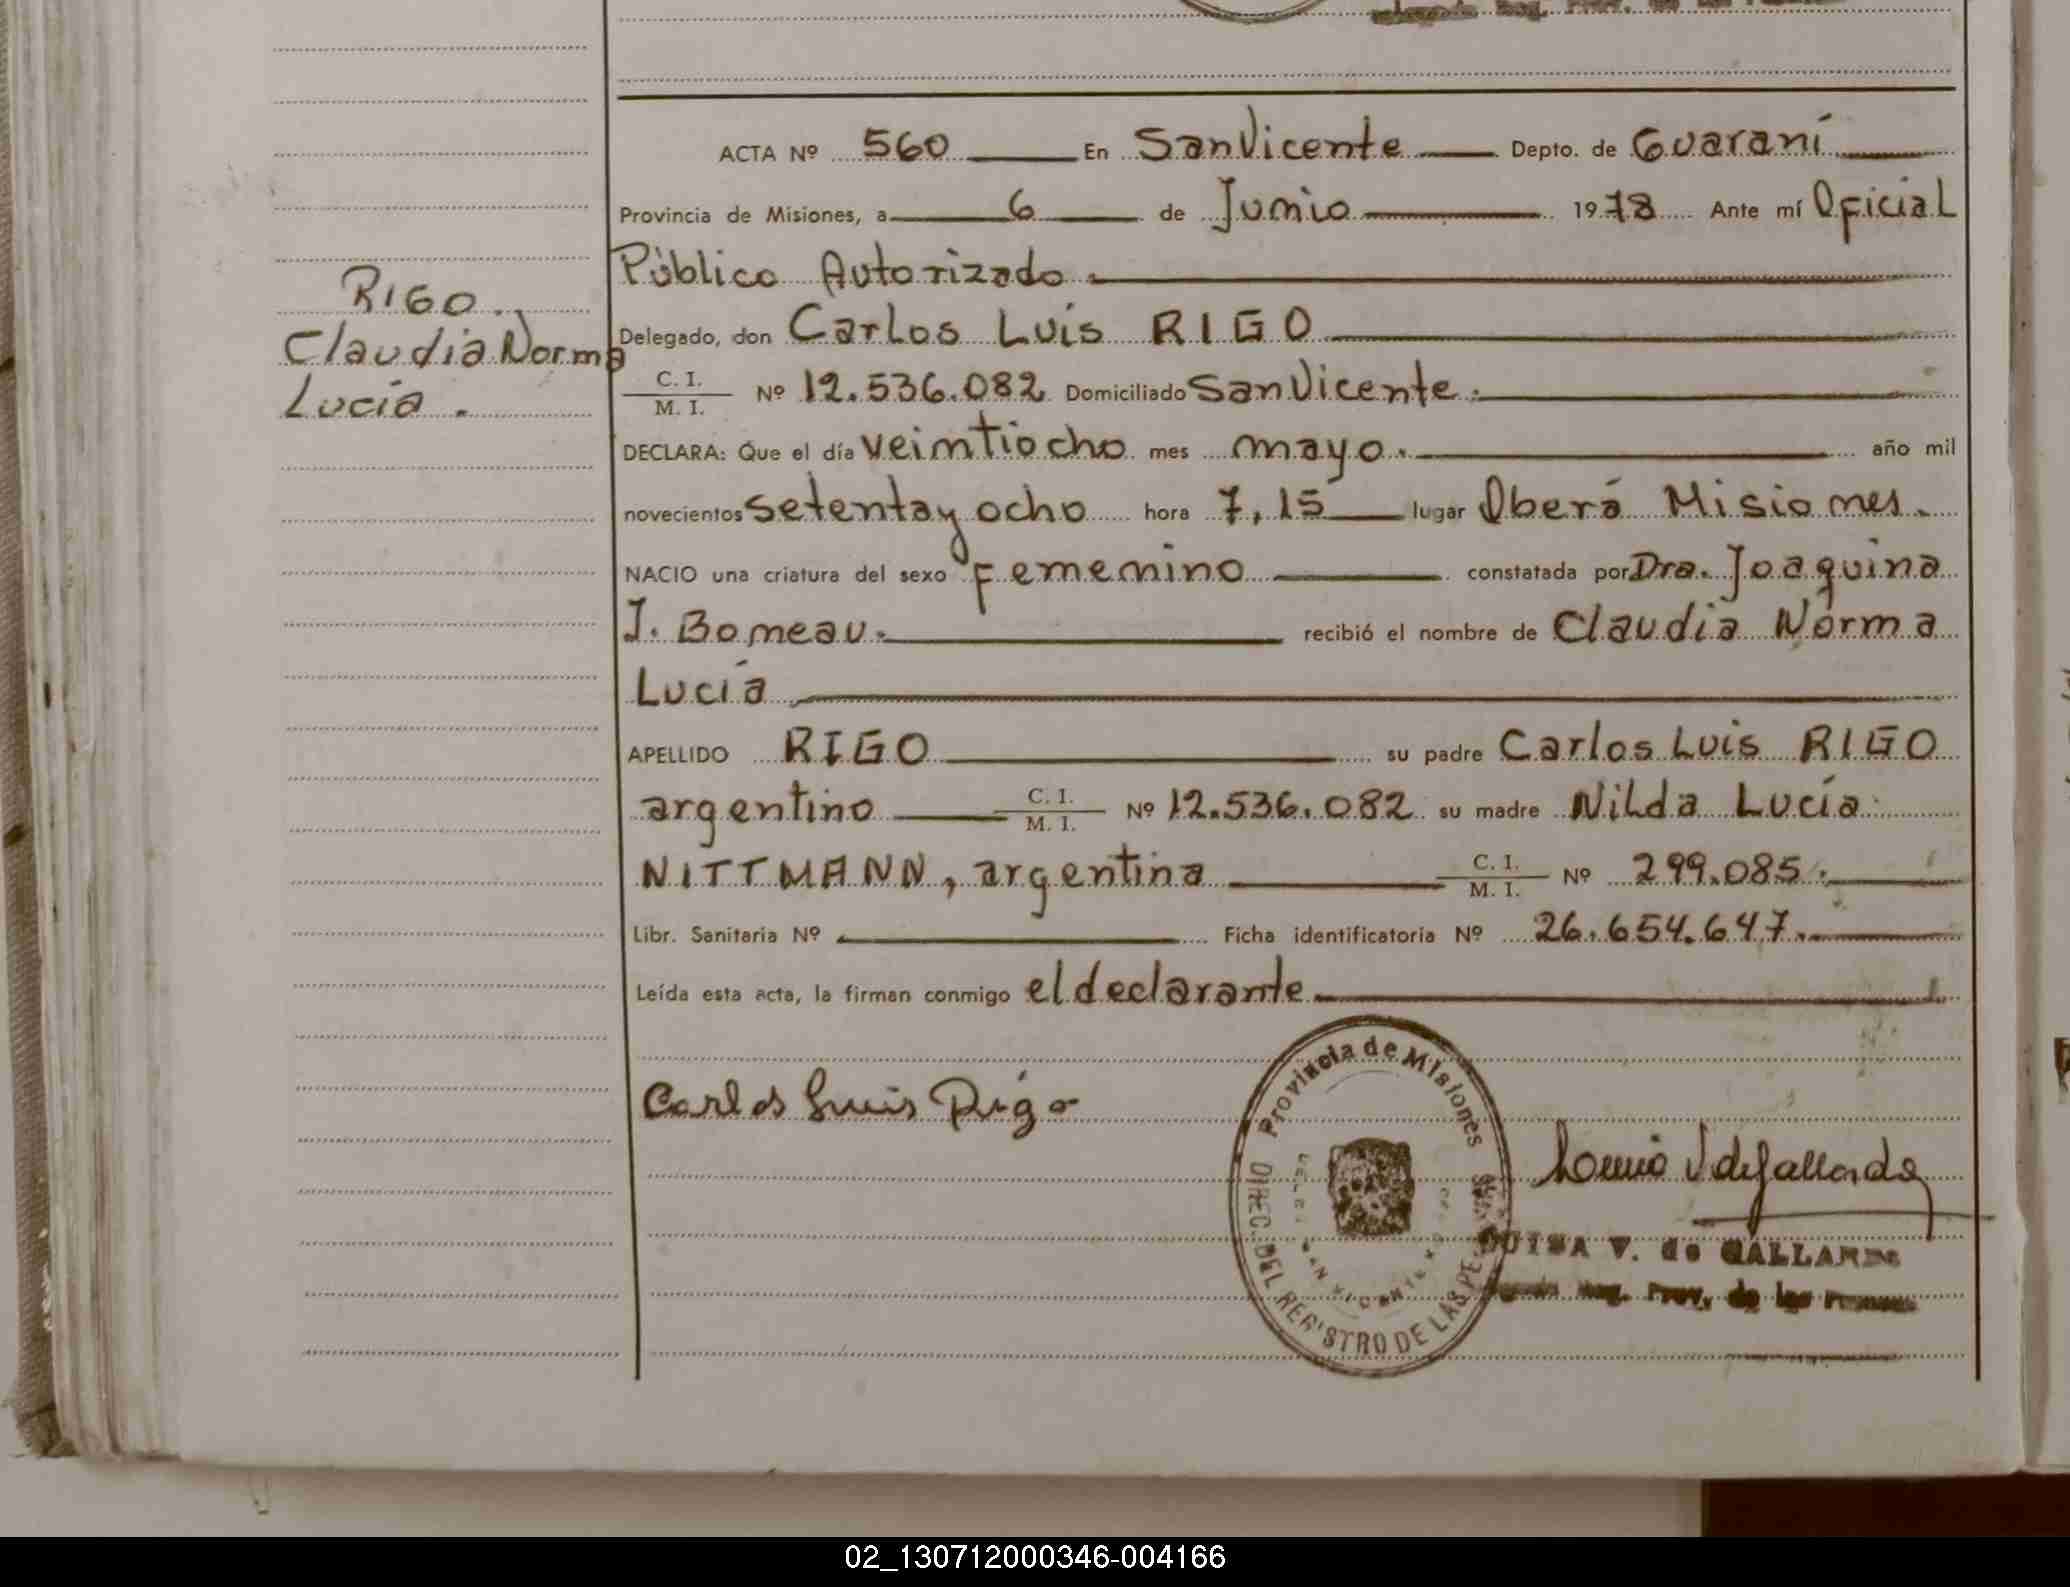 ACTA Nº 560 En San Vicente Depto. de Guaraní
Provincia de Misiones, a 6 de Junio 1978 Ante mí Oficial
Público Autorizado.
RIGO.
Claudia Norma
Lucía.
Delegado, don Carlos Luís RIGO
C. I.
M. I. Nº 12.536.082 Domiciliado San Vicente.
DECLARA: Que el día veintiocho mes mayo. año mil
novecientos setenta y ocho hora 7,15 lugar Oberá Misiones.
NACIO una criatura del sexo Femenino constatada por Dra. Joaquina
J. Bomeau. recibió el nombre de Claudia Norma
Lucía
APELLIDO RIGO su padre Carlos Luis RIGO
argentino C. I.
M. I. Nº 12.536.082 su madre Nilda Lucía
NITTMANN, argentina C. I.
M. I. Nº 299.085.
Libr. Sanitaria Nº Ficha identificatoria Nº 26.654.647.
Leída esta acta, la firman conmigo el declarante
Carlos Luis Rigo
Provincia de Misiones
DIREC. DEL REGISTRO DE LAS PE
SAN VICENTE
V. de GALLARDO
Reg. Prov. de las Personas
02_130712000346-004166